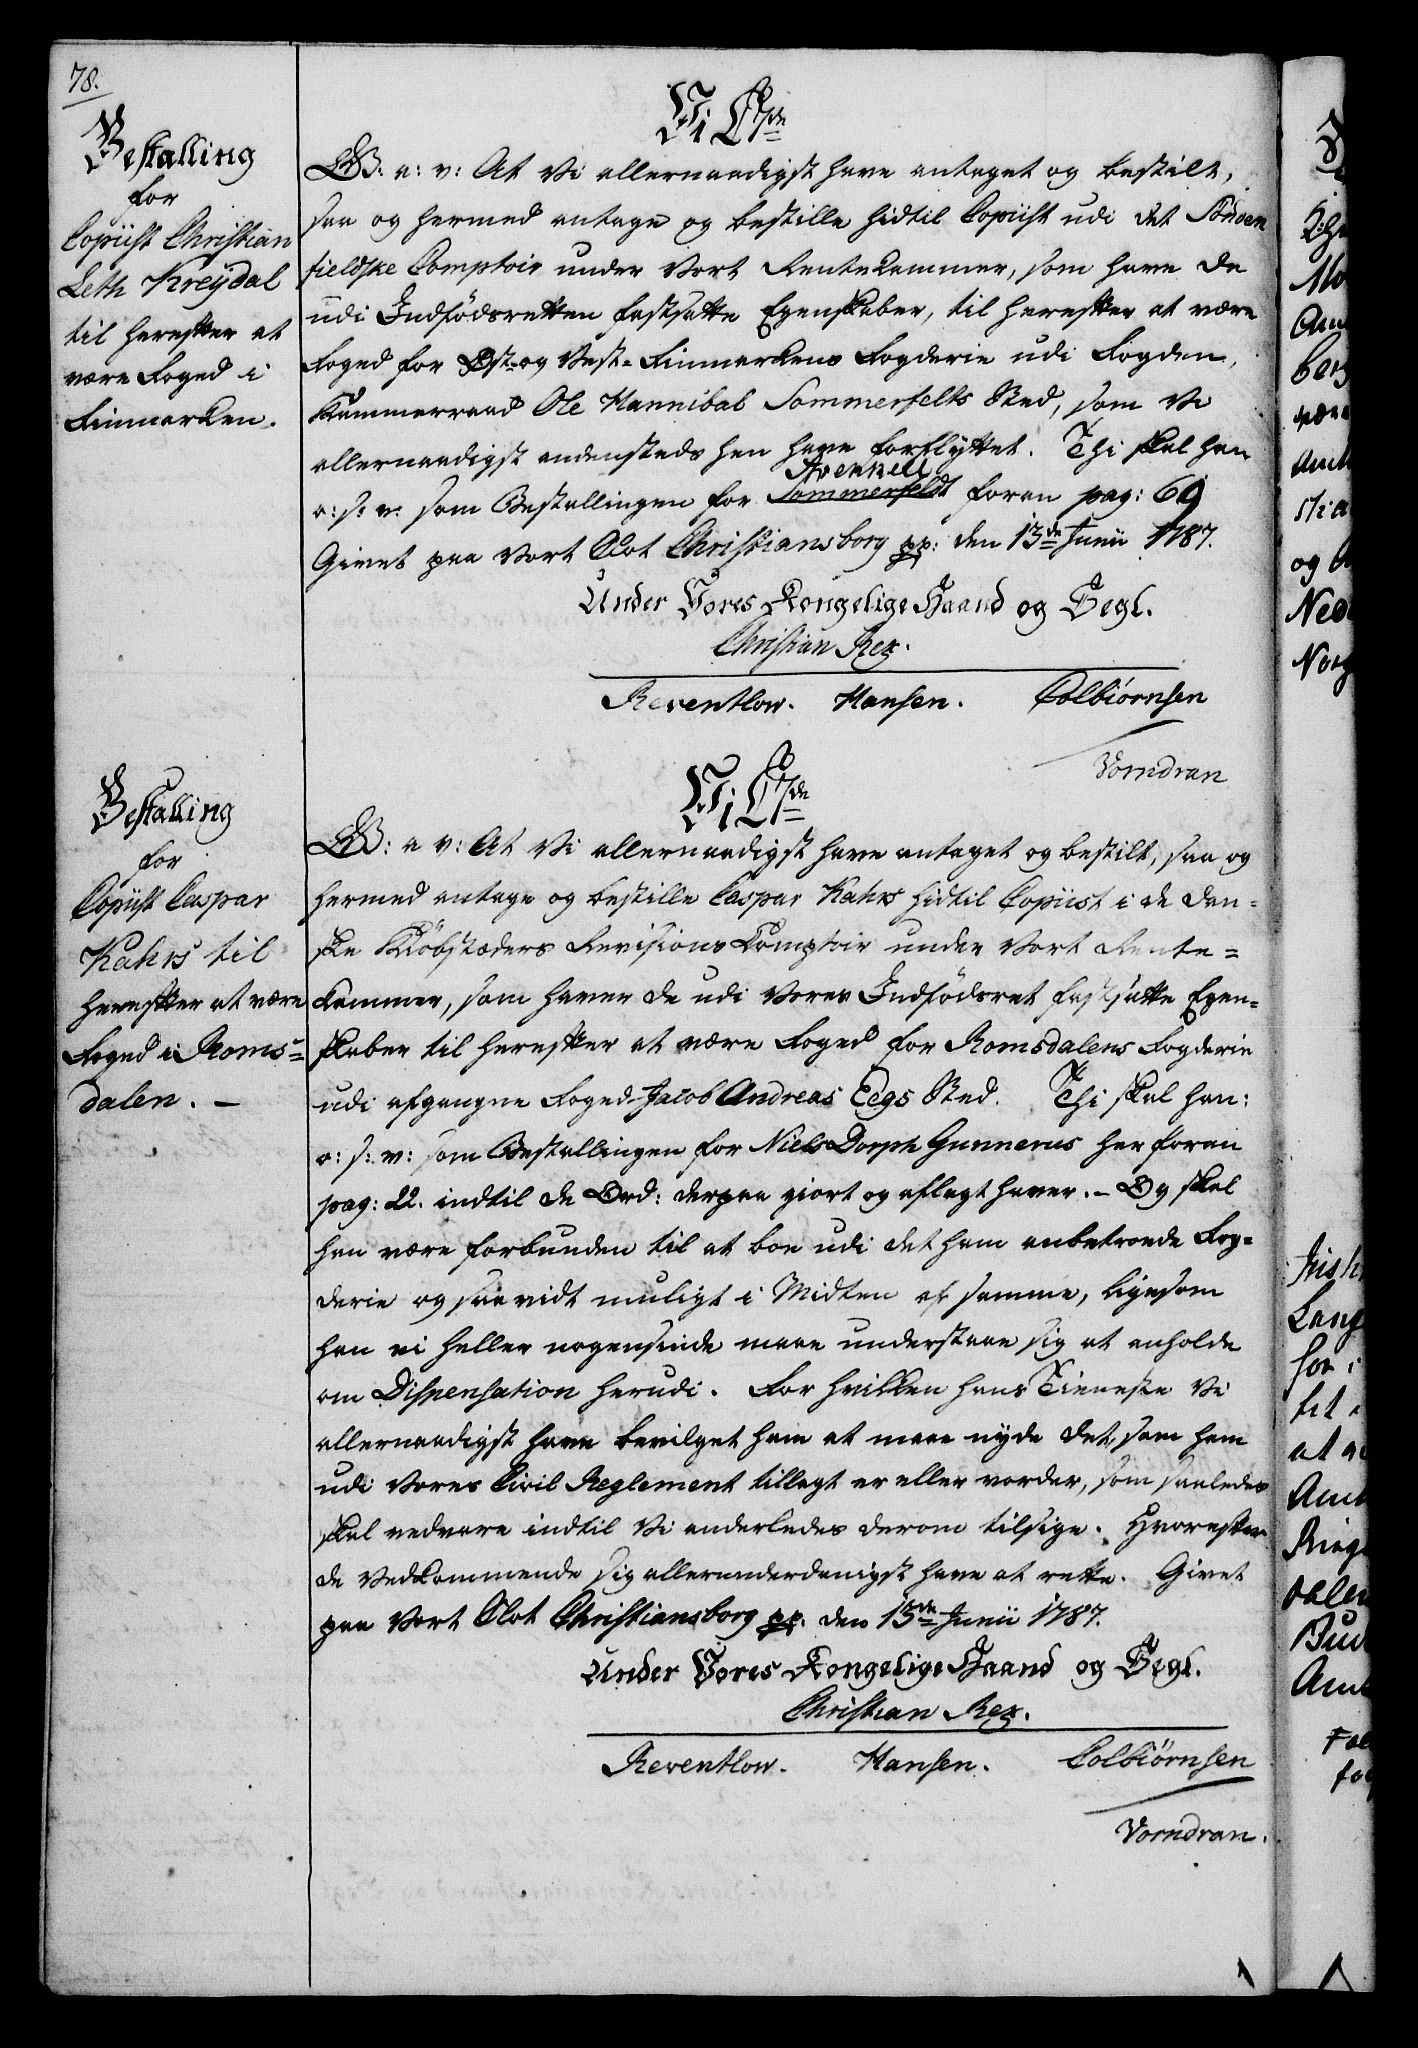 78.
Bestalling
for
Copiist Christian
Leth Kreÿdal
til herefter at
være Foged i
Finmarken.
Vi C 7de
G: a: v: At Vi allernaadigst have antaget og bestilt,
saa og hermed antage og bestille hidtil Copiist udi det Sönden
fieldske Comptoir under Vort Rentekammer, som have de
udi Indfödsretten fastsatte Egenskaber, til herefter at være
Foged for Öst- og Vest-Finmarkens Fogderie udi Fogden,
Kammerraad Ole Hannibal Sommerfelts Sted, som Vi
allernaadigst andensteds hen have forflÿttet. Thi skal han
o: s: v: som Bestallingen for Sommerfeldt Avenell foran pag: 69
Givet paa Vort Slot Christiansborg pp: den 13de Junii 1787.
Under Vores Kongelige Haand og Segl.
Christian Rex.
Reventlow. Hansen. Colbiörnsen
Vorndran
Bestalling
for
Copiist Caspar
Kahrs til
herefter at være
Foged i Roms=
dalen. –
Vi C 7de
G: a v: At Vi allernaadigst have antaget og bestilt, saa og
hermed antage og bestille Caspar Kahrs hidtil Copiist i de Dan-
ske Kiöbstæders Revisions Comptoir under Vort Rente=
kammer, som haver de udi Vores Indfödsret fastsatte Egen-
skaber til herefter at være Foged for Romsdalens Fogderie
udi afgangne Foged Jacob Andreas Eegs Sted. Thi skal han:
o: s: v: som Bestallingen for Niels Dorph Gunnerus her foran
pag: 22. indtil de Ord: derpaa giort og aflagt haver. – Og skal
han være forbunden til at boe udi det ham anbetroede Fog=
derie og saavidt muligt i Midten af samme, ligesom
han ei heller nogensinde maae understaae sig at anholde
om Dispensation herudi. For hvilken hans Tieneste Vi
allernaadigst have bevilget ham at maae nyde det, som ham
udi Vores Civil Reglement tillagt er eller vorder, som saaledes
skal vedvare indtil Vi anderledes derom tilsige. Hvorefter
de Vedkommende sig allerunderdanigst have at rette. Givet
paa Vort Slot Christiansborg pp. den 13de Junii 1787.
Under Vores Kongelige Haand og Segl.
Christian Rex.
Reventlow. Hansen. Colbiörnsen
Vorndran.